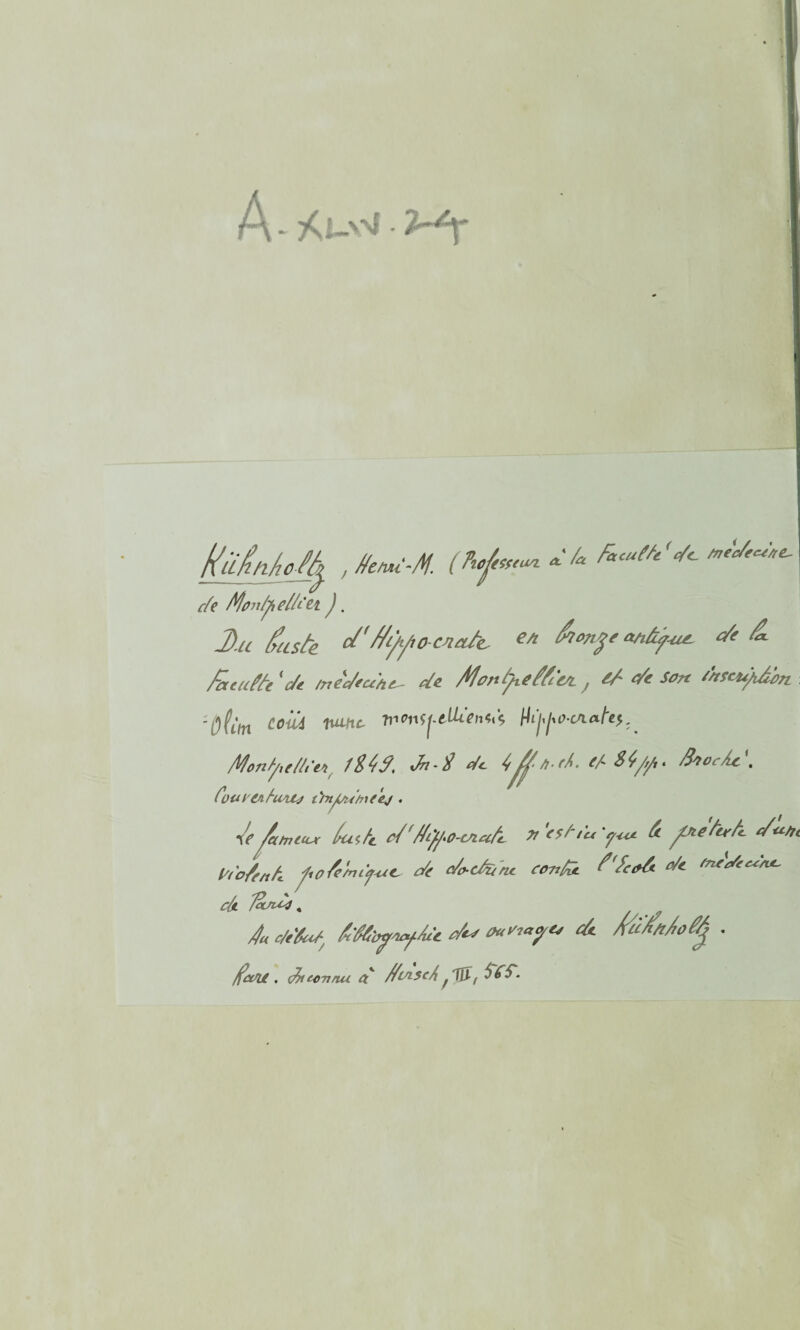 A. XLVI. 24
Kühnholtz, Henri-M. (Professeur à la Faculté de médecine
de Montpellier).
Du buste d'Hippocrate en bronze antique de la
Faculté de médecine de Montpellier, et de son inscription :
-Olim coüs nunc monspelliensis Hippocrates.
Montpellier, 1849. In-8 de 4 ff. n. ch. et 84 pp. Broché.
Couvertures imprimées.
Le fameux buste d'Hippocrate n'est ici que le prétexte d'une
violente polémique de doctrine contre l'École de médecine
de Paris.
Au début, bibliographie des ouvrages de Kühnholtz.
Rare. Inconnu à Hirsch, III, 565.